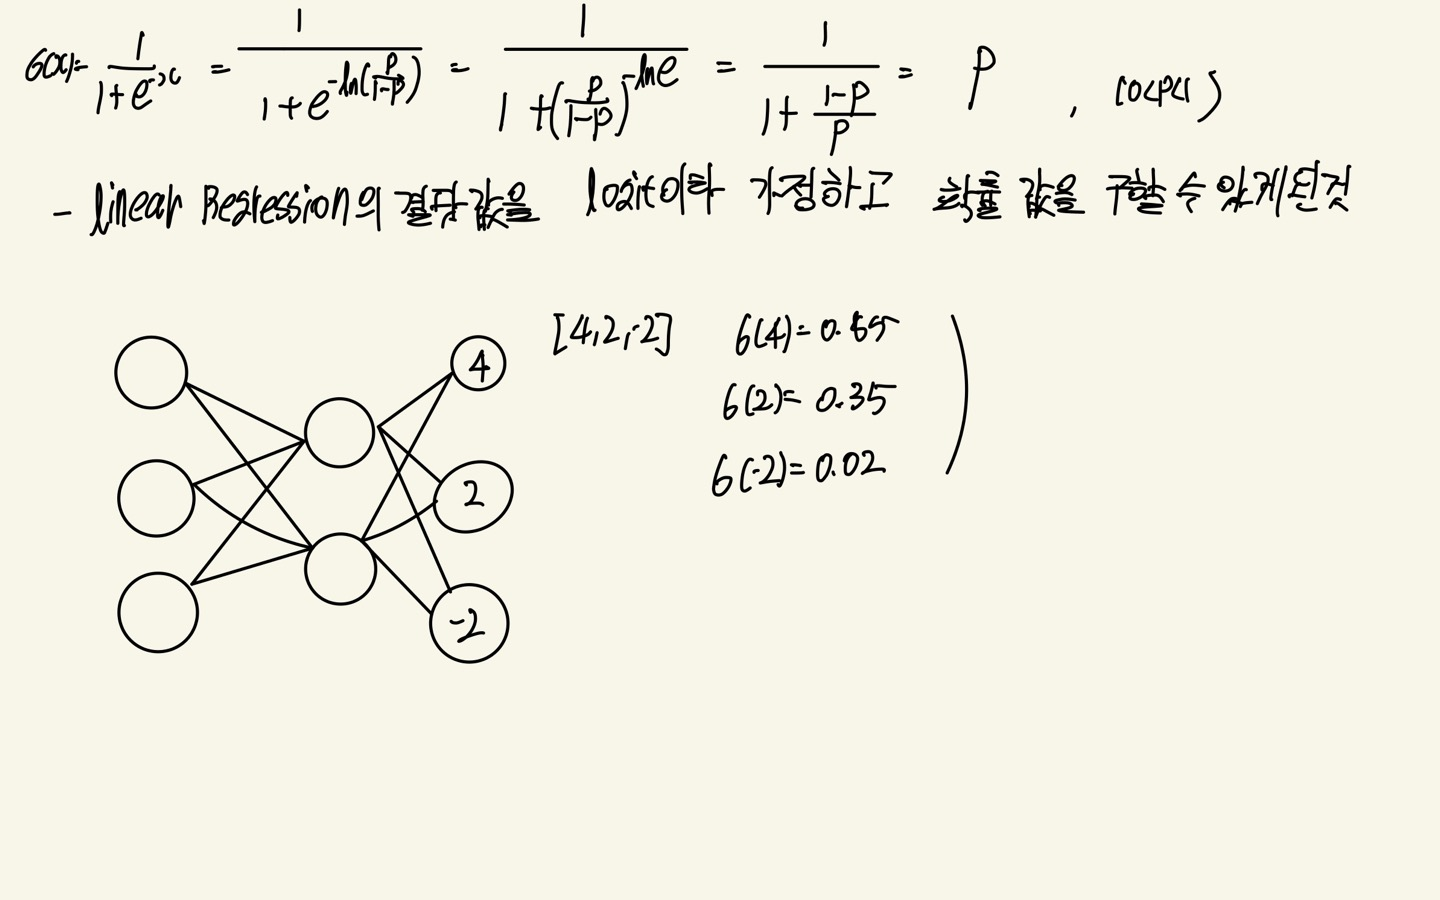 6(x)= 1/(1+e^-x) = 1/(1+e^-ln(p/(1-p))) = 1/(1+(p/(1-p))^-lne) = 1/(1+(1-p)/p) = p , (0<p<1)
- linear Regression의 결괏값을 logit이라 가정하고 확률 값을 구할 수 있게 된 것
[4,2,-2] 6(4)=0.65
4
6(2)=0.35
6(-2)=0.02
2
-2